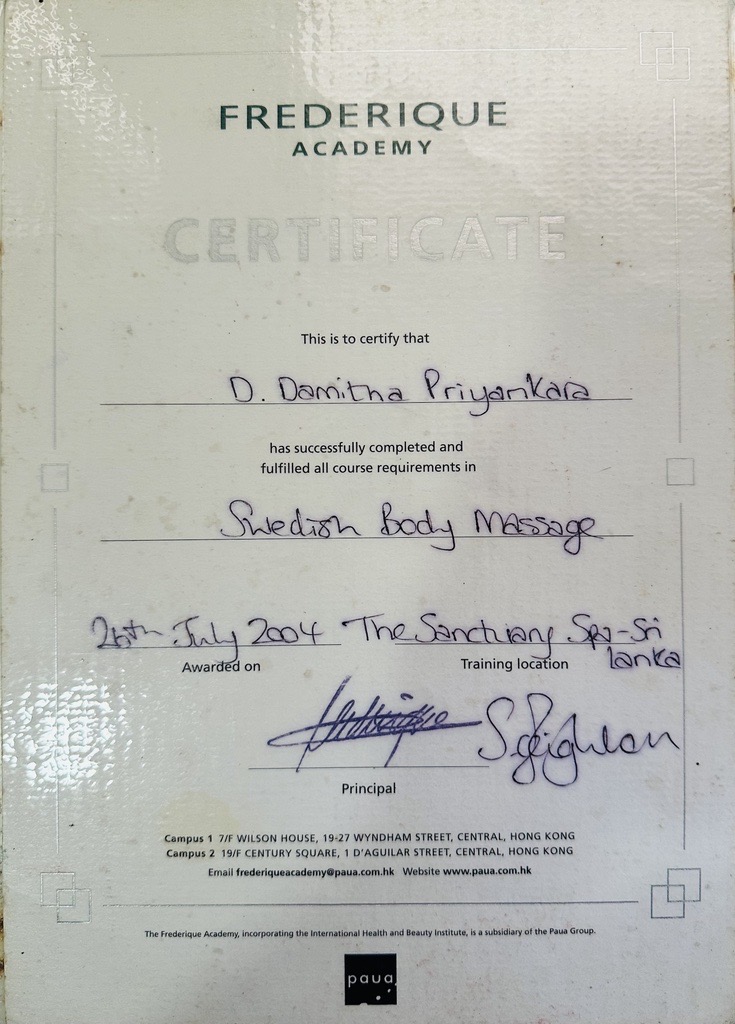 FREDERIQUE
ACADEMY
CERTIFICATE
This is to certify that
D. Damitha Priyankara
has successfully completed and
fulfilled all course requirements in
Swedish Body Massage
26th July 2004 The Sanctuary Spa-Sri
lanka
Awarded on Training location
Principal
Campus 1 7/F WILSON HOUSE, 19-27 WYNDHAM STREET, CENTRAL, HONG KONG
Campus 2 19/F CENTURY SQUARE, 1 D'AGUILAR STREET, CENTRAL, HONG KONG
Email frederiqueacademy@paua.com.hk Website www.paua.com.hk
The Frederique Academy, incorporating the International Health and Beauty Institute, is a subsidiary of the Paua Group.
paua